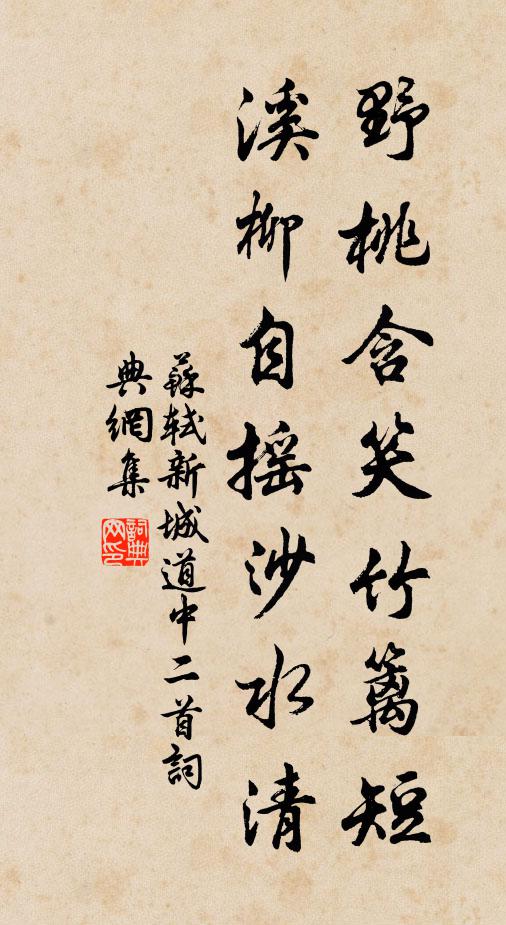 野桃含笑竹篱短
溪柳自摇沙水清
蘇軾新城道中二首詞
典網集
詞典网印